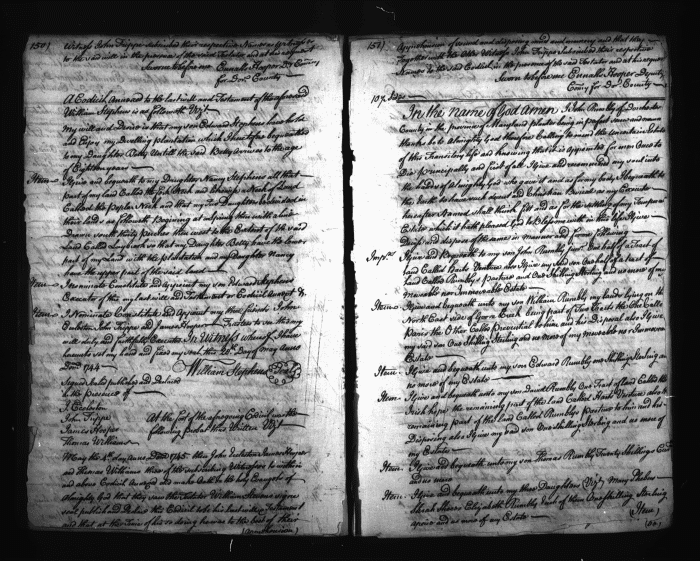 150)
Witness John Trippe subscribed their respective Names as Witnesses
to the said will in the presence of the said Testator and at his request
Sworn before me Ennalls Hooper Dp Comry
for Dor. County
A Codicil Annexed to the last will and Testament of the aforesaid
William Stephens is as followeth Vizt
My will and Desire is that my son Edward Stephens have hold
and Enjoy my Dwelling plantation which I heretofore bequeathed
to my Daughter Betty Untill the said Betty Arrives to the age
of Eighteen years
Item I give and bequeath to my Daughter Nancy Stephens all that
part of my Land Called
Called the
this land as followeth Begining
Land Called so that my Daughter Betty have the lower
part of my Land with the plantation and my Daughter Nancy
have the upper part of the said land
Item I nominate Constitute and Appoint my son Edward Stephens
Executor of this my last will and Testament or Codicil Annexed &c
Item I Nominate Constitute and Appoint my that friends John
Eccleston John Trippe and James Hooper Trustees to see this my
will duly and faithfully Executed In Witness whereof I have
hereunto set my hand and fixed my seal this 20th Day of May Anno
Dom 1744
William Stephens Seal
Signed Sealed published and Declared
in the presence of
J. Eccleston
John Trippe
James Hooper
Thomas Williams
At the foot of the aforegoing Codicil was the
following probat thus Written Vizt
May the 4th day Anno Dom 1745 then John Eccleston James Hooper
and Thomas Williams three of the subscribing Witnesses to within
and above Codicil Annexed and made Oath on the holy Evangels of
Almighty God that they saw the Testator William Stevens sign
seal publish and Declare this Codicil to be his last will and Testament
and that at the Time of his so doing he was to the best of their
(Apprehension)
151)
Apprehension of sound and disposing mind and memory and that they
Together with the Other Witness John Trippe Subscribed their respective
Names to the said Codicil in the presence of the said Testator and at his request
Sworn before me Ennalls Hooper Deputy
Comry for Dor. County
In the Name of God Amen I John Rumbly of Dorchester
County in the province of Maryland planter being in perfect sense and memory
thanks be to Almighty God therefore Calling to mind the uncertain Estate
of this Transitory life and knowing that it is appointed for men Once to
Die principally and first of all I give and recommend my soul into
the hands of Almighty God who gave it and as for my body I bequeath to
the Earth to have a decent and Christian Burial as my Executor
hereafter Named shall think fit and as for the settling of my Temporal
Estate which it hath pleased God to Bless me with in this life I give
devise and dispose of the same in manner and form following
Imps. I give and bequeath to my son John Rumbly One half of a Tract of
land Called Harts Venture also I give my said son One half of a part of
land Called Rumblys pasture and One Shilling Sterling and no more of my
moveable nor Immoveable Estate
Item I give and bequeath unto my son William Rumbly my lands lying on the
North East side of Creek being part of Two Tracts the One Called
Paris the Other Called to him and his disposal also I give
my said son One Shilling Sterling and no more of my moveable nor Immoveable
Estate
Item I give and bequeath unto my son Edward Rumbly one Shilling Sterling and
no more of my Estate
Item I give and bequeath unto my son David Rumbly One Tract of land Called the
Irish hope the remaining part of the land Called Harts Venture also the
remaining part of the land Called Rumblys pasture to him and his
Disposing also I give my said son One Shilling Sterling and no more of
my Estate
Item I give and bequeath unto my son Thomas Rumbly Twenty Shillings
and no more
Item I give and bequeath unto my three Daughters Vizt Mary Phelen
Sarah Elizabeth Rumbly each of them One Shilling Sterling
apiece and no more of my Estate
(Item)